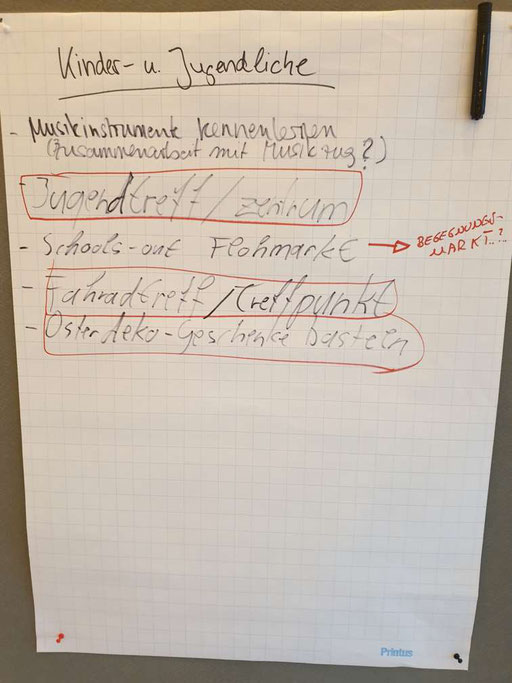 Kinder- u. Jugendliche
- Musikinstrumente kennenlernen
(Zusammenarbeit mit Musikzug?)
- Jugendtreff/zentrum
- Schools-out Flohmarkt → BEGEGNUNGS-
MARKT..?
- Fahradtreff/Treffpunkt
- Osterdeko-Geschenke basteln
Printus